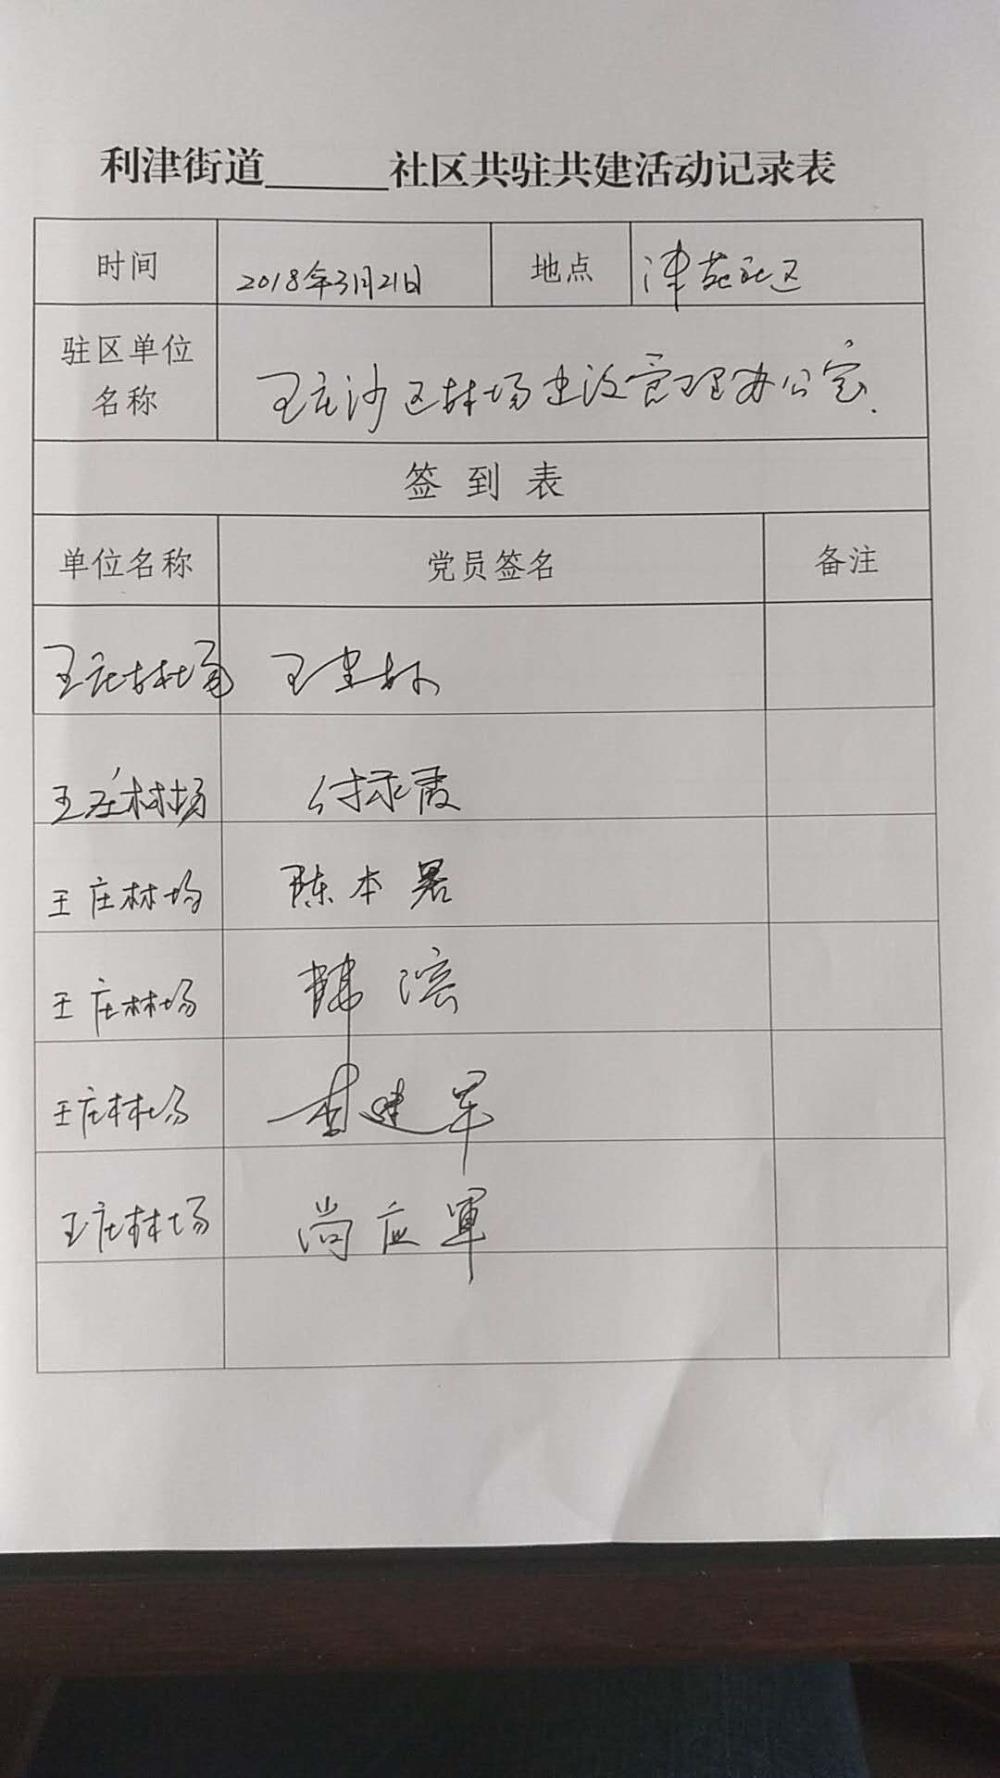 利津街道______社区共驻共建活动记录表
时间 2018年3月21日 地点 津苑社区
驻区单位名称 王庄沙区林场建设管理办公室
签到表
单位名称 党员签名 备注
王庄林场 王建林
王庄林场 付永霞
王庄林场 陈本昌
王庄林场 韩滨
王庄林场 李建军
王庄林场 尚应军